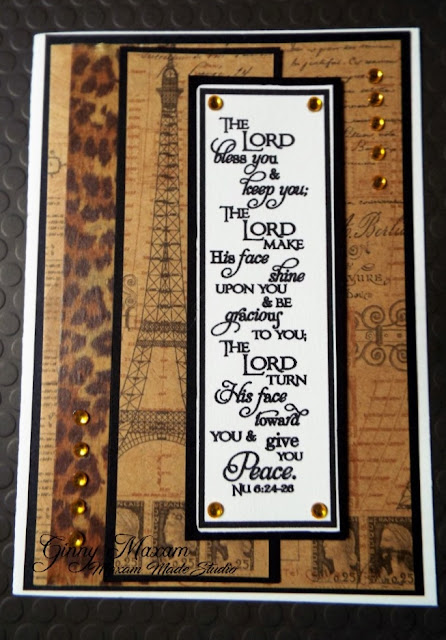 THE
LORD
bless you
&
keep you;
THE
LORD
MAKE
His face
shine
UPON YOU
& BE
gracious
TO YOU;
THE
LORD
TURN
His face
toward
YOU & give
YOU
Peace.
NU 6:24-26
Ginny Maxam
Maxam Made Studio
0,25